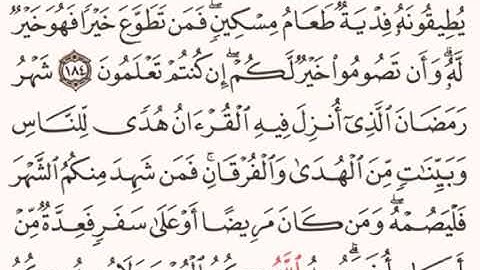 يُطِيقُونَهُۥ فِدْيَةٌ طَعَامُ مِسْكِينٍ ۖ فَمَن تَطَوَّعَ خَيْرًا فَهُوَ خَيْرٌ
لَّهُۥ ۚ وَأَن تَصُومُوا۟ خَيْرٌ لَّكُمْ ۖ إِن كُنتُمْ تَعْلَمُونَ ١٨٤ شَهْرُ
رَمَضَانَ ٱلَّذِىٓ أُنزِلَ فِيهِ ٱلْقُرْءَانُ هُدًى لِّلنَّاسِ
وَبَيِّنَٰتٍ مِّنَ ٱلْهُدَىٰ وَٱلْفُرْقَانِ ۚ فَمَن شَهِدَ مِنكُمُ ٱلشَّهْرَ
فَلْيَصُمْهُ ۖ وَمَن كَانَ مَرِيضًا أَوْ عَلَىٰ سَفَرٍ فَعِدَّةٌ مِّنْ
ٱللَّهُ